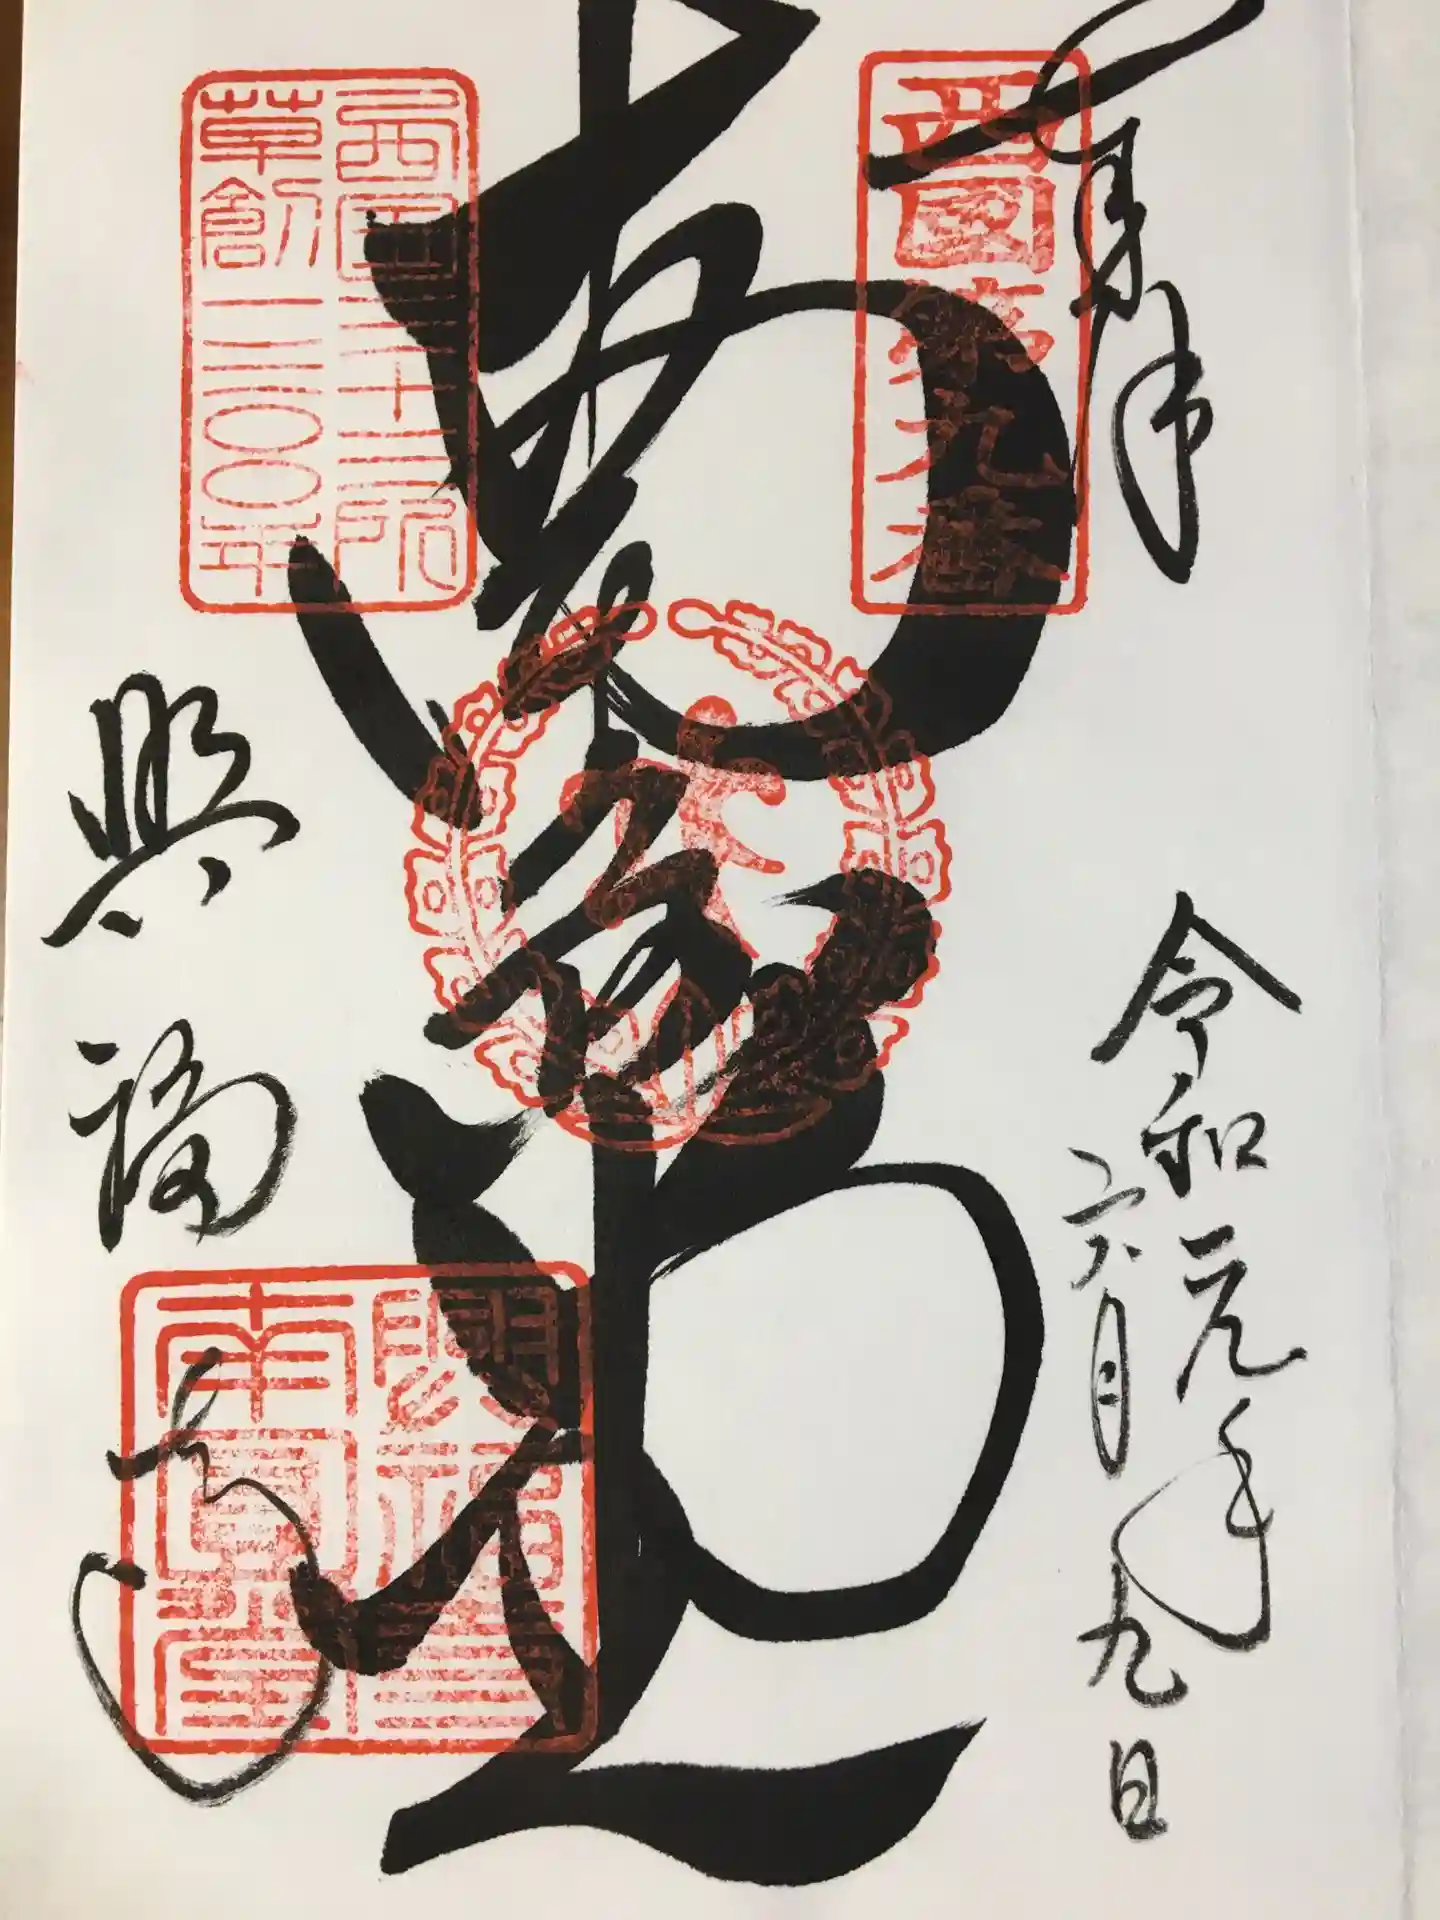 奉拝
西國第九番
令和元年
六月九日
西国三十三所
草創一三〇〇年
興福寺
興福寺
南圓堂